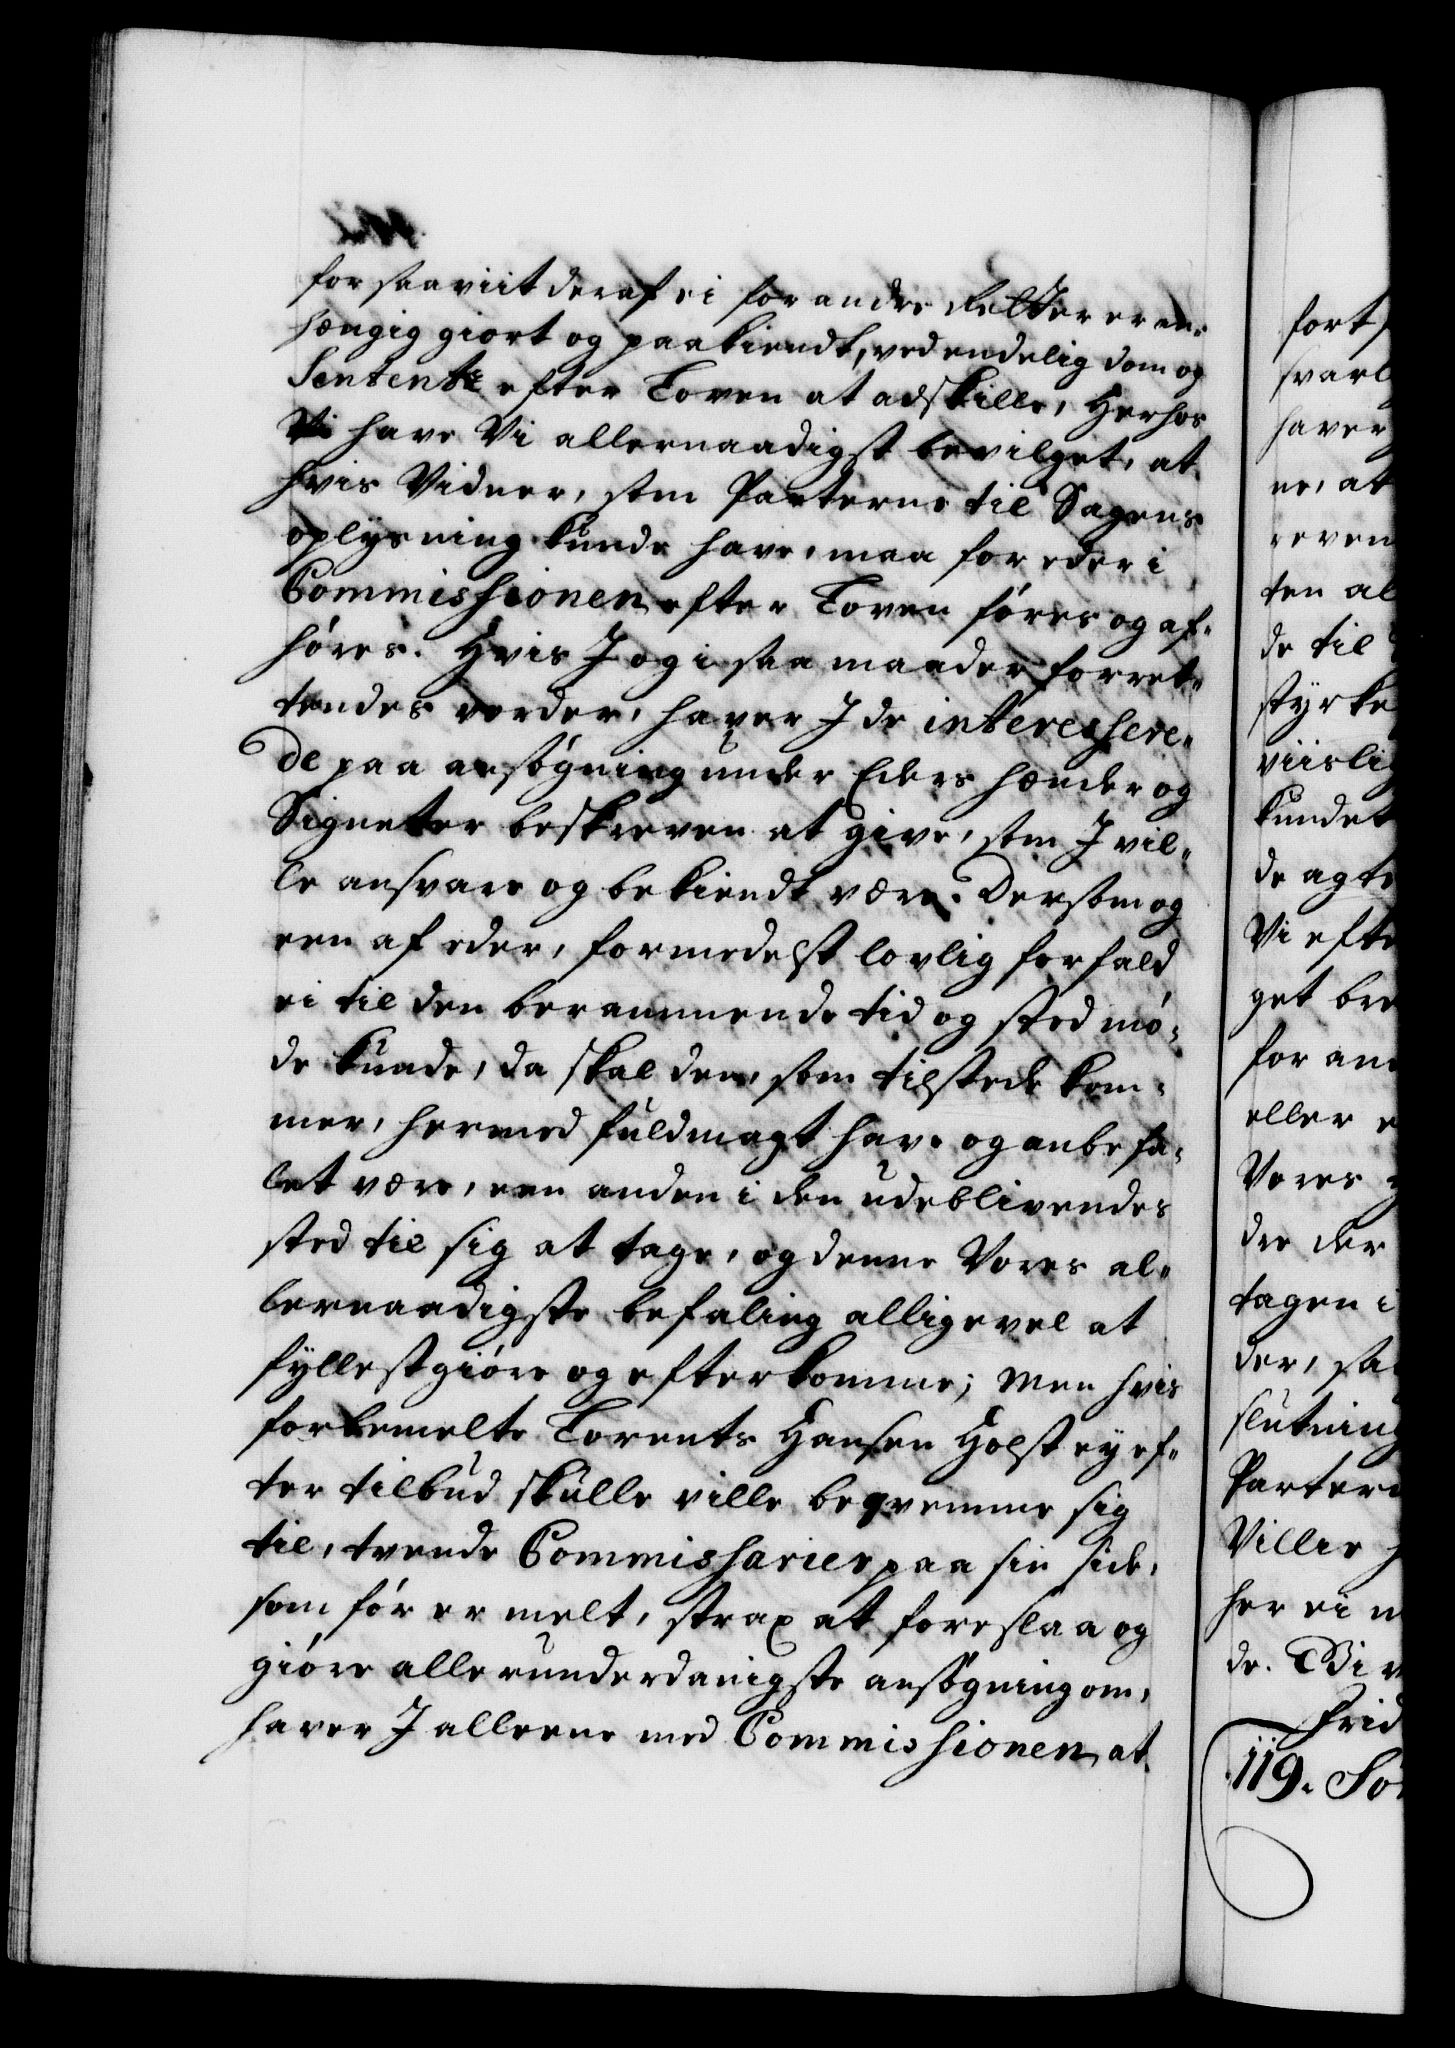 forsaaviit deraf ei for andre Retter er an-
hængig giort og paakiendt, ved endelig dom og
Sententz efter Loven at adskille, Herhos
Vi have Vi allernaadigst bevilget, at
hvis Vidner, som Parterne til Sagens
oplysning kunde have, maa for eder i
Commissionen efter Loven føres og af-
høres. Hvis I og i saa maader forret-
tendes vorder, haver I de interessere-
de paa ansøgning under Eders hænder og
Signeter beskreven at give, som I vil-
le ansvare og bekiendt være. Dersom og
een af eder, formedelst lovlig forfald
ei til den berammende tid og sted mø-
de kunde, da skal den, som tilstede kom-
mer, hermed fuldmagt have og anbefa-
let være, een anden i den udeblivendes
sted til sig at tage, og denne Vores al-
lernaadigste befaling alligevel at
fyllestgiøre og efterkomme; men hvis
forbemelte Lorents Hansen Holst ey ef-
ter tilbud skulle ville beqvemme sig
til, tvende Commissarier paa sin side,
som før er melt, strax at foreslaa og
giøre allerunderdanigste ansøgning om,
haver I alleene med Commissionen at
fort
svarl
haver
ne, at
reven
ten al
de til
styrke
viislig
kundet
de agte
Vi efte
get bre
for an
eller e
Vores
dre der
tagen i
der, sa
slutning
Partern
Villie h
her ei
de. Giv
Frid
119. Sø